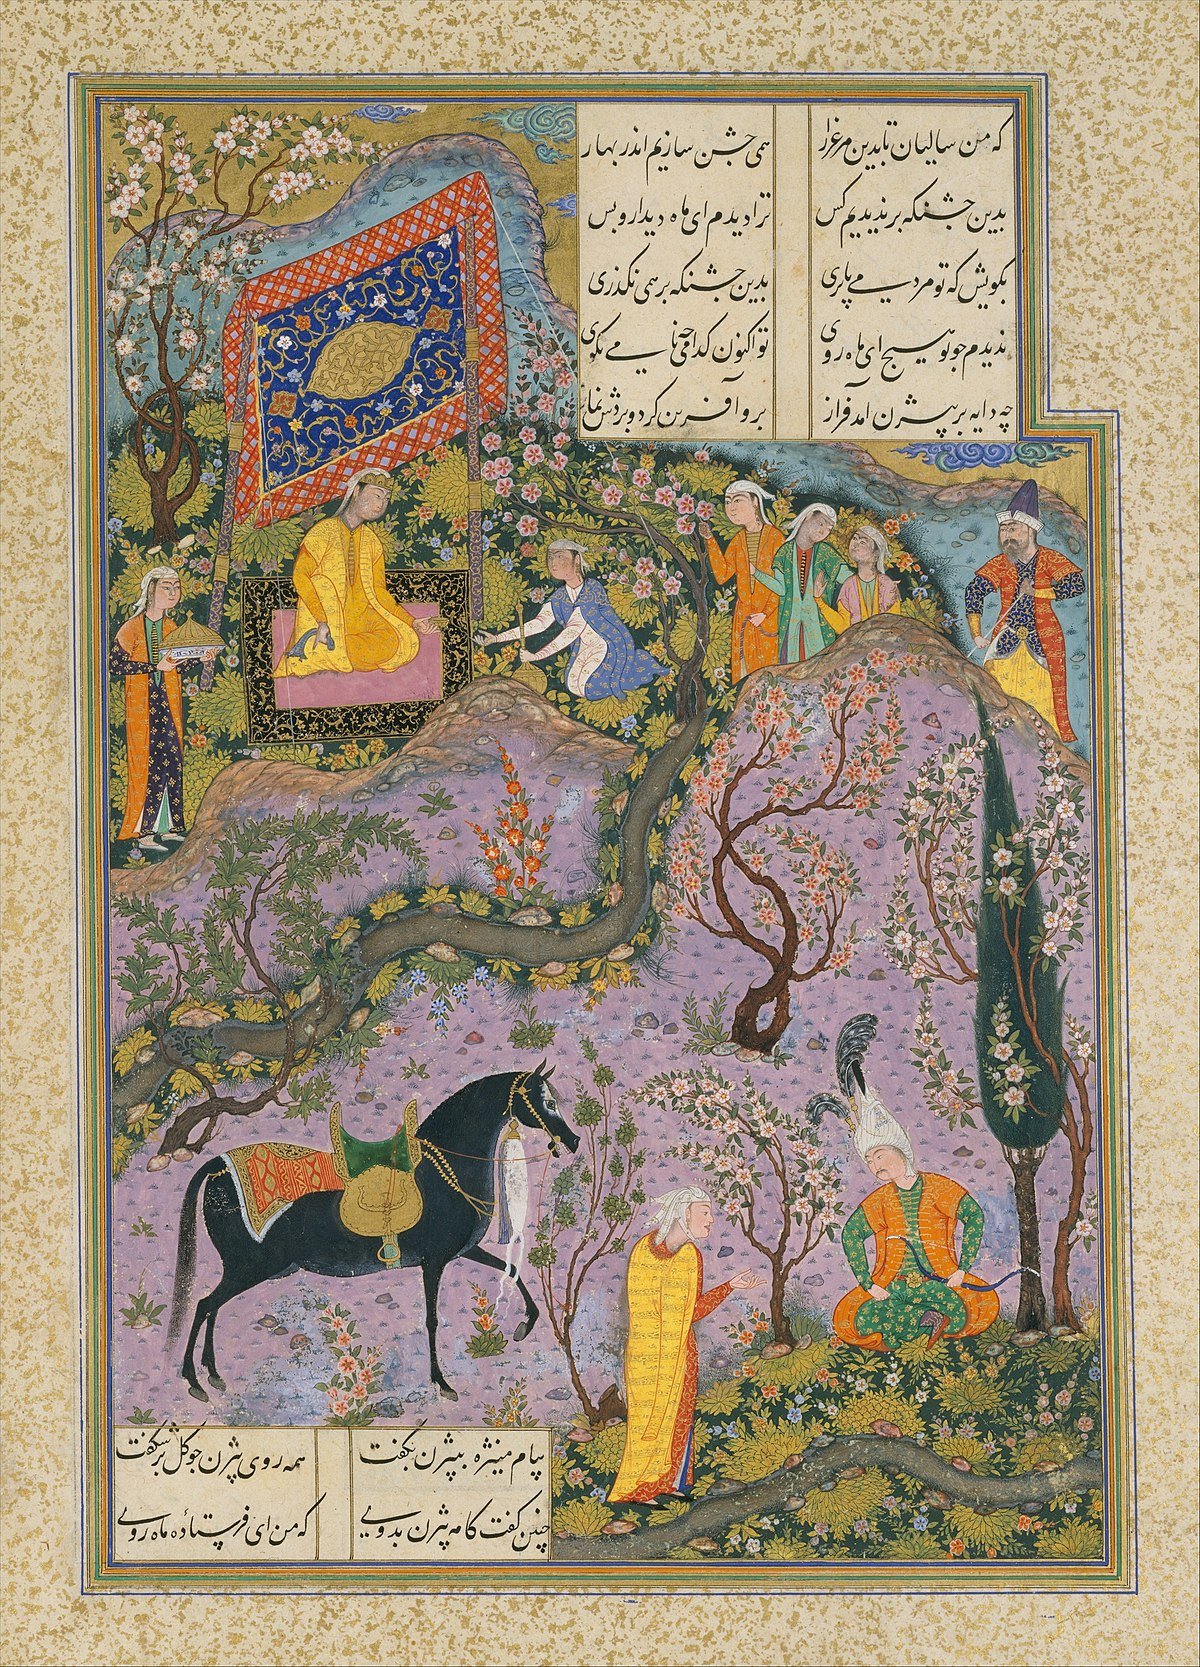 که من سالیان تا بدین مرغزار همی جشن سازیم اندر بهار
بدین جشنگه بر ندیدیم کس ترا دیدم ای ماه دیدار و بس
بگویش که تو مردمی یا پری بدین جشنگه بر همی نگذری
ندیدم چو تو هیچ ای ماه روی تو اکنون کدامی چه نامی بگوی
چه دایه بر بیژن آمد فراز برو آفرین کرد و بردش نماز
پیام منیژه به بیژن بگفت همه روی بیژن چو گل بر شکفت
چنین گفت کامه بیژن بدوی که من ای فرستاده ماه روی